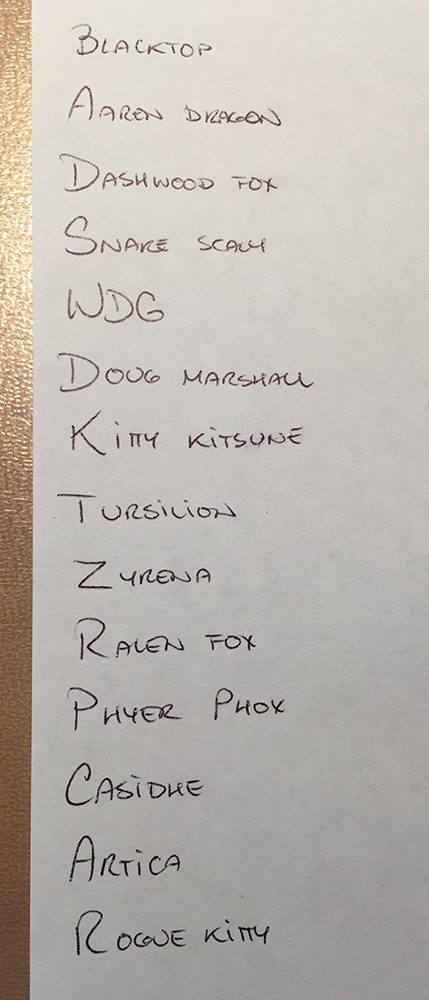 Blacktop
Aaren Dragon
Dashwood Fox
Snake Scaly
WDG
Doug Marshall
Kitty Kitsune
Tursilion
Zyrena
Ralen Fox
Phyer Phox
Casidhe
Artica
Rogue Kitty